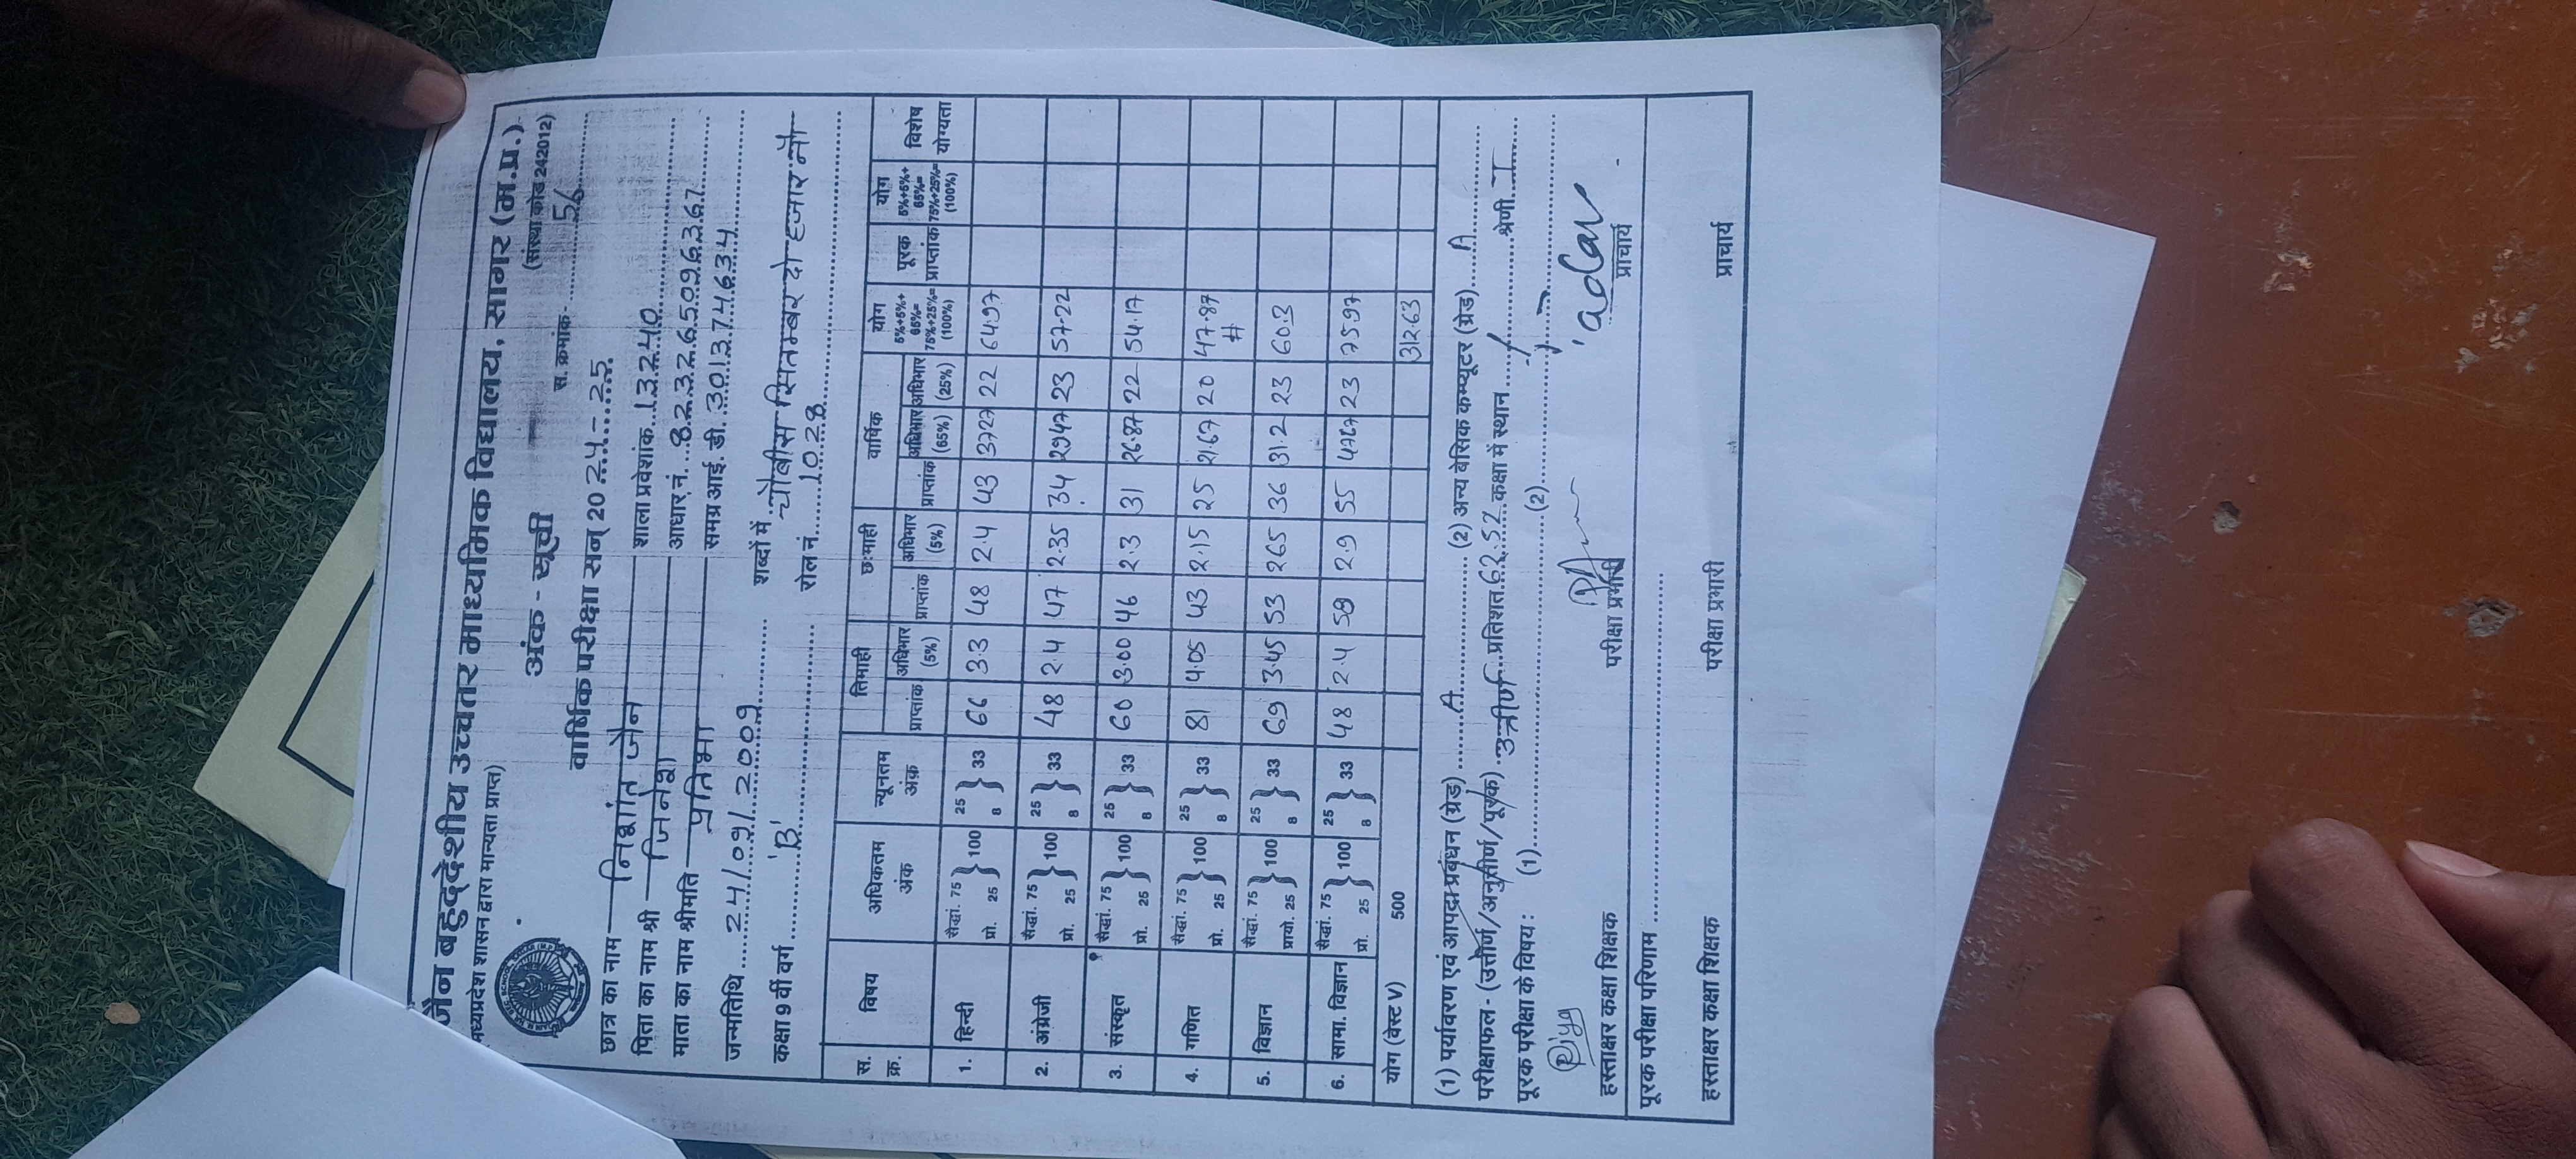 जैन बहुद्देशीय उच्चतर माध्यमिक विद्यालय, सागर (म.प्र.)
मध्यप्रदेश शासन द्वारा मान्यता प्राप्त)
(संस्था कोड 242012)
अंक - सूची
स. क्रमांक - 56
वार्षिक परीक्षा सन् 2024-25
छात्र का नाम निशांत जैन शाला प्रवेशांक 13240
पिता का नाम श्री जिनेन्द्र आधार नं. 823265096367
माता का नाम श्रीमति प्रतिभा समग्र आई. डी. 301374634
जन्मतिथि 24/09/2009 शब्दों में चौबीस सितम्बर दो हजार नौ
कक्षा 9 वीं वर्ग 'B' रोल नं. 1028
स. क्र. विषय अधिकतम अंक न्यूनतम अंक तिमाही छःमाही वार्षिक योग 5%+5%+ 65%= 75%+25%= (100%) पूरक प्राप्तांक योग 5%+5%+ 65%= 75%+25%= (100%) विशेष योग्यता
प्राप्तांक अधिभार (5%) प्राप्तांक अधिभार (5%) प्राप्तांक अधिभार (65%) अधिभार (25%)
1. हिन्दी सैद्धां. 75 प्रो. 25 } 100 25 8 } 33 66 3.3 48 2.4 43 37.27 22 64.97
2. अंग्रेजी सैद्धां. 75 प्रो. 25 } 100 25 8 } 33 48 2.4 47 2.35 34 29.47 23 57.22
3. संस्कृत सैद्धां. 75 प्रो. 25 } 100 25 8 } 33 60 3.00 46 2.3 31 26.87 22 54.17
4. गणित सैद्धां. 75 प्रो. 25 } 100 25 8 } 33 81 4.05 43 2.15 25 21.67 20 47.87 #
5. विज्ञान सैद्धां. 75 प्रायो. 25 } 100 25 8 } 33 69 3.45 53 2.65 36 31.2 23 60.3
6. सामा. विज्ञान सैद्धां. 75 प्रो. 25 } 100 25 8 } 33 48 2.4 58 2.9 55 47.67 23 75.97
योग (बेस्ट V) 500 312.63
(1) पर्यावरण एवं आपदा प्रबंधन (ग्रेड) A (2) अन्य बेसिक कम्प्यूटर (ग्रेड) A
परीक्षाफल - (उत्तीर्ण/अनुत्तीर्ण/पूरक) उत्तीर्ण प्रतिशत 62.52 कक्षा में स्थान श्रेणी I
पूरक परीक्षा के विषय : (1) (2)
हस्ताक्षर कक्षा शिक्षक परीक्षा प्रभारी प्राचार्य
पूरक परीक्षा परिणाम
हस्ताक्षर कक्षा शिक्षक परीक्षा प्रभारी प्राचार्य